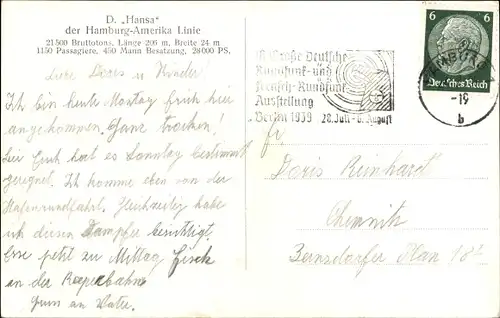 D. „Hansa“
der Hamburg-Amerika Linie
21 500 Bruttotons, Länge 206 m, Breite 24 m
1150 Passagiere, 450 Mann Besatzung, 28 000 PS.
Liebe Doris u Kinder
Ich bin heute Montag früh hier
angekommen. Ganz trocken!
bei Euch hat es Sonntag bestimmt
geregnet. Ich komme eben von der
Hafenrundfahrt. Gleichzeitig habe
ich diesen Dampfer besichtigt.
Esse jetzt zu Mittag Fisch
an der Reeperbahn
Gruss an Vater.
16. Große Deutsche
Rundfunk- und
Fernseh-Rundfunk
Ausstellung
Berlin 1939 28. Juli - 6. August
6 6
Deutsches Reich
-19
b
Doris Reinhardt
Chemnitz
Bernsdorfer Plan